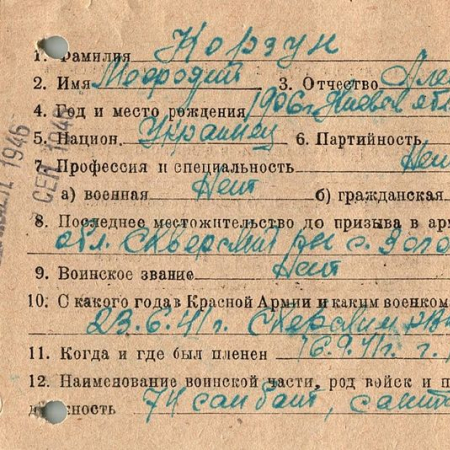 1. Фамилия Корзун
2. Имя Мефодий 3. Отчество Але
4. Год и место рождения 1906 г. Киевск обл
5. Национ. Украинец 6. Партийность
7. Профессия и специальность Нет
а) военная Нет б) гражданская
8. Последнее местожительство до призыва в ар
обл. Сквирский р-н с. Золо
9. Воинское звание Нет
10. С какого года в Красной Армии и каким военком
23.6.41 г. Сквирским
11. Когда и где был пленен 16.9.41 г. г.
12. Наименование воинской части, род войск и п
ность 74 сан бат, санит
1946
СЕН 1946